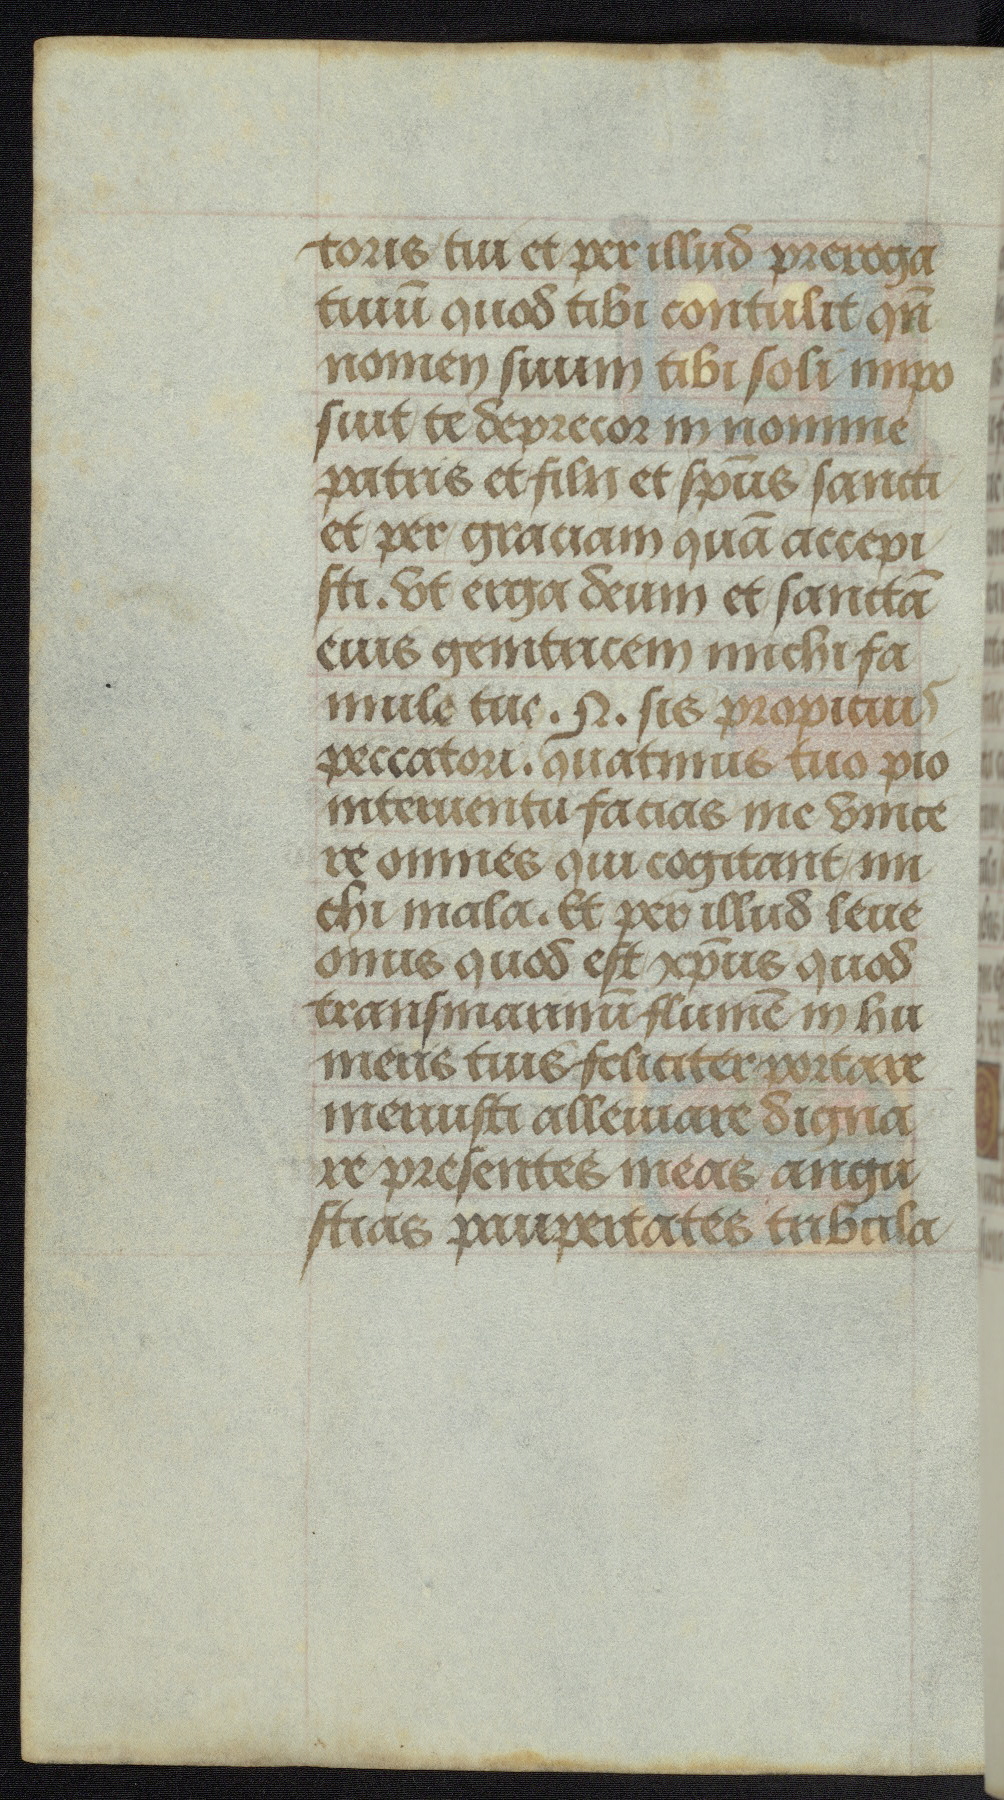 toris tui et per illud preroga
tiuū quod tibi contulit qn̄
nomen suum tibi soli impo
suit te deprecor in nomine
patris et filii et sp̄us sancti
et per graciam quā accepi
sti. Vt erga deum et sanctā
eius genitricem michi fa
mule tue. N. sis propicius
peccatori. quatinus tuo pio
interuentu facias me vince
re omnes qui cogitant mi
chi mala. Et per illud leue
onus quod est xp̄us quod
transmarinū flumē in hu
meris tuis feliciter portare
meruisti alleuiare digna
re presentes meas angu
stias paupertates tribula